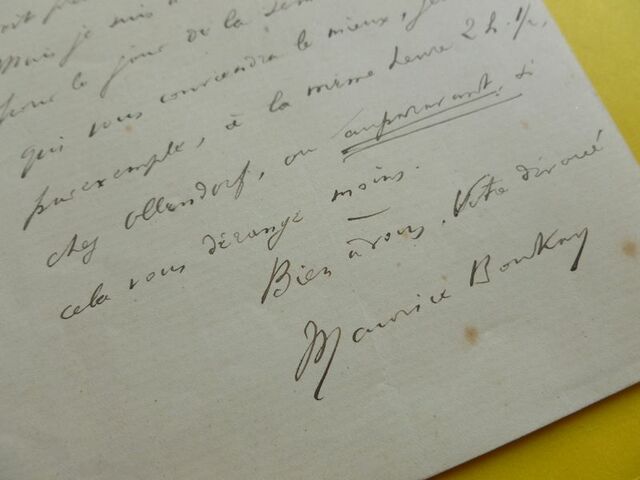 Mais je suis
pour le jour de la
qui vous conviendra le mieux,
par exemple, à la même heure 2 h. 1/2,
chez Ollendorf, ou auparavant, si
cela vous dérange moins.
Bien à vous. Votre dévoué
Maurice Boukay